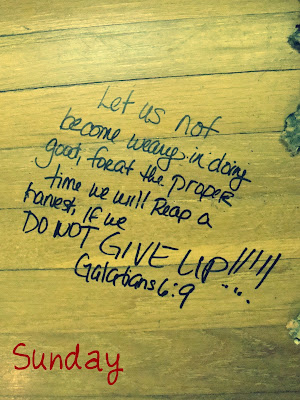 Let us not
become weary in doing
good, for at the proper
time we will Reap a
harvest, if we
DO NOT GIVE UP!!!!!
Galatians 6:9
Sunday